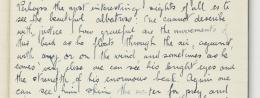 Perhaps the most interesting sights of all is to
see the beautiful albatross. One cannot describe
with justice how graceful are the movements of
this bird as he floats through the air, against,
with, or on the wind and sometimes as he
comes very close we can see his bright eyes and
the strength of his enormous beak. Again one
can see him skim the water for prey and